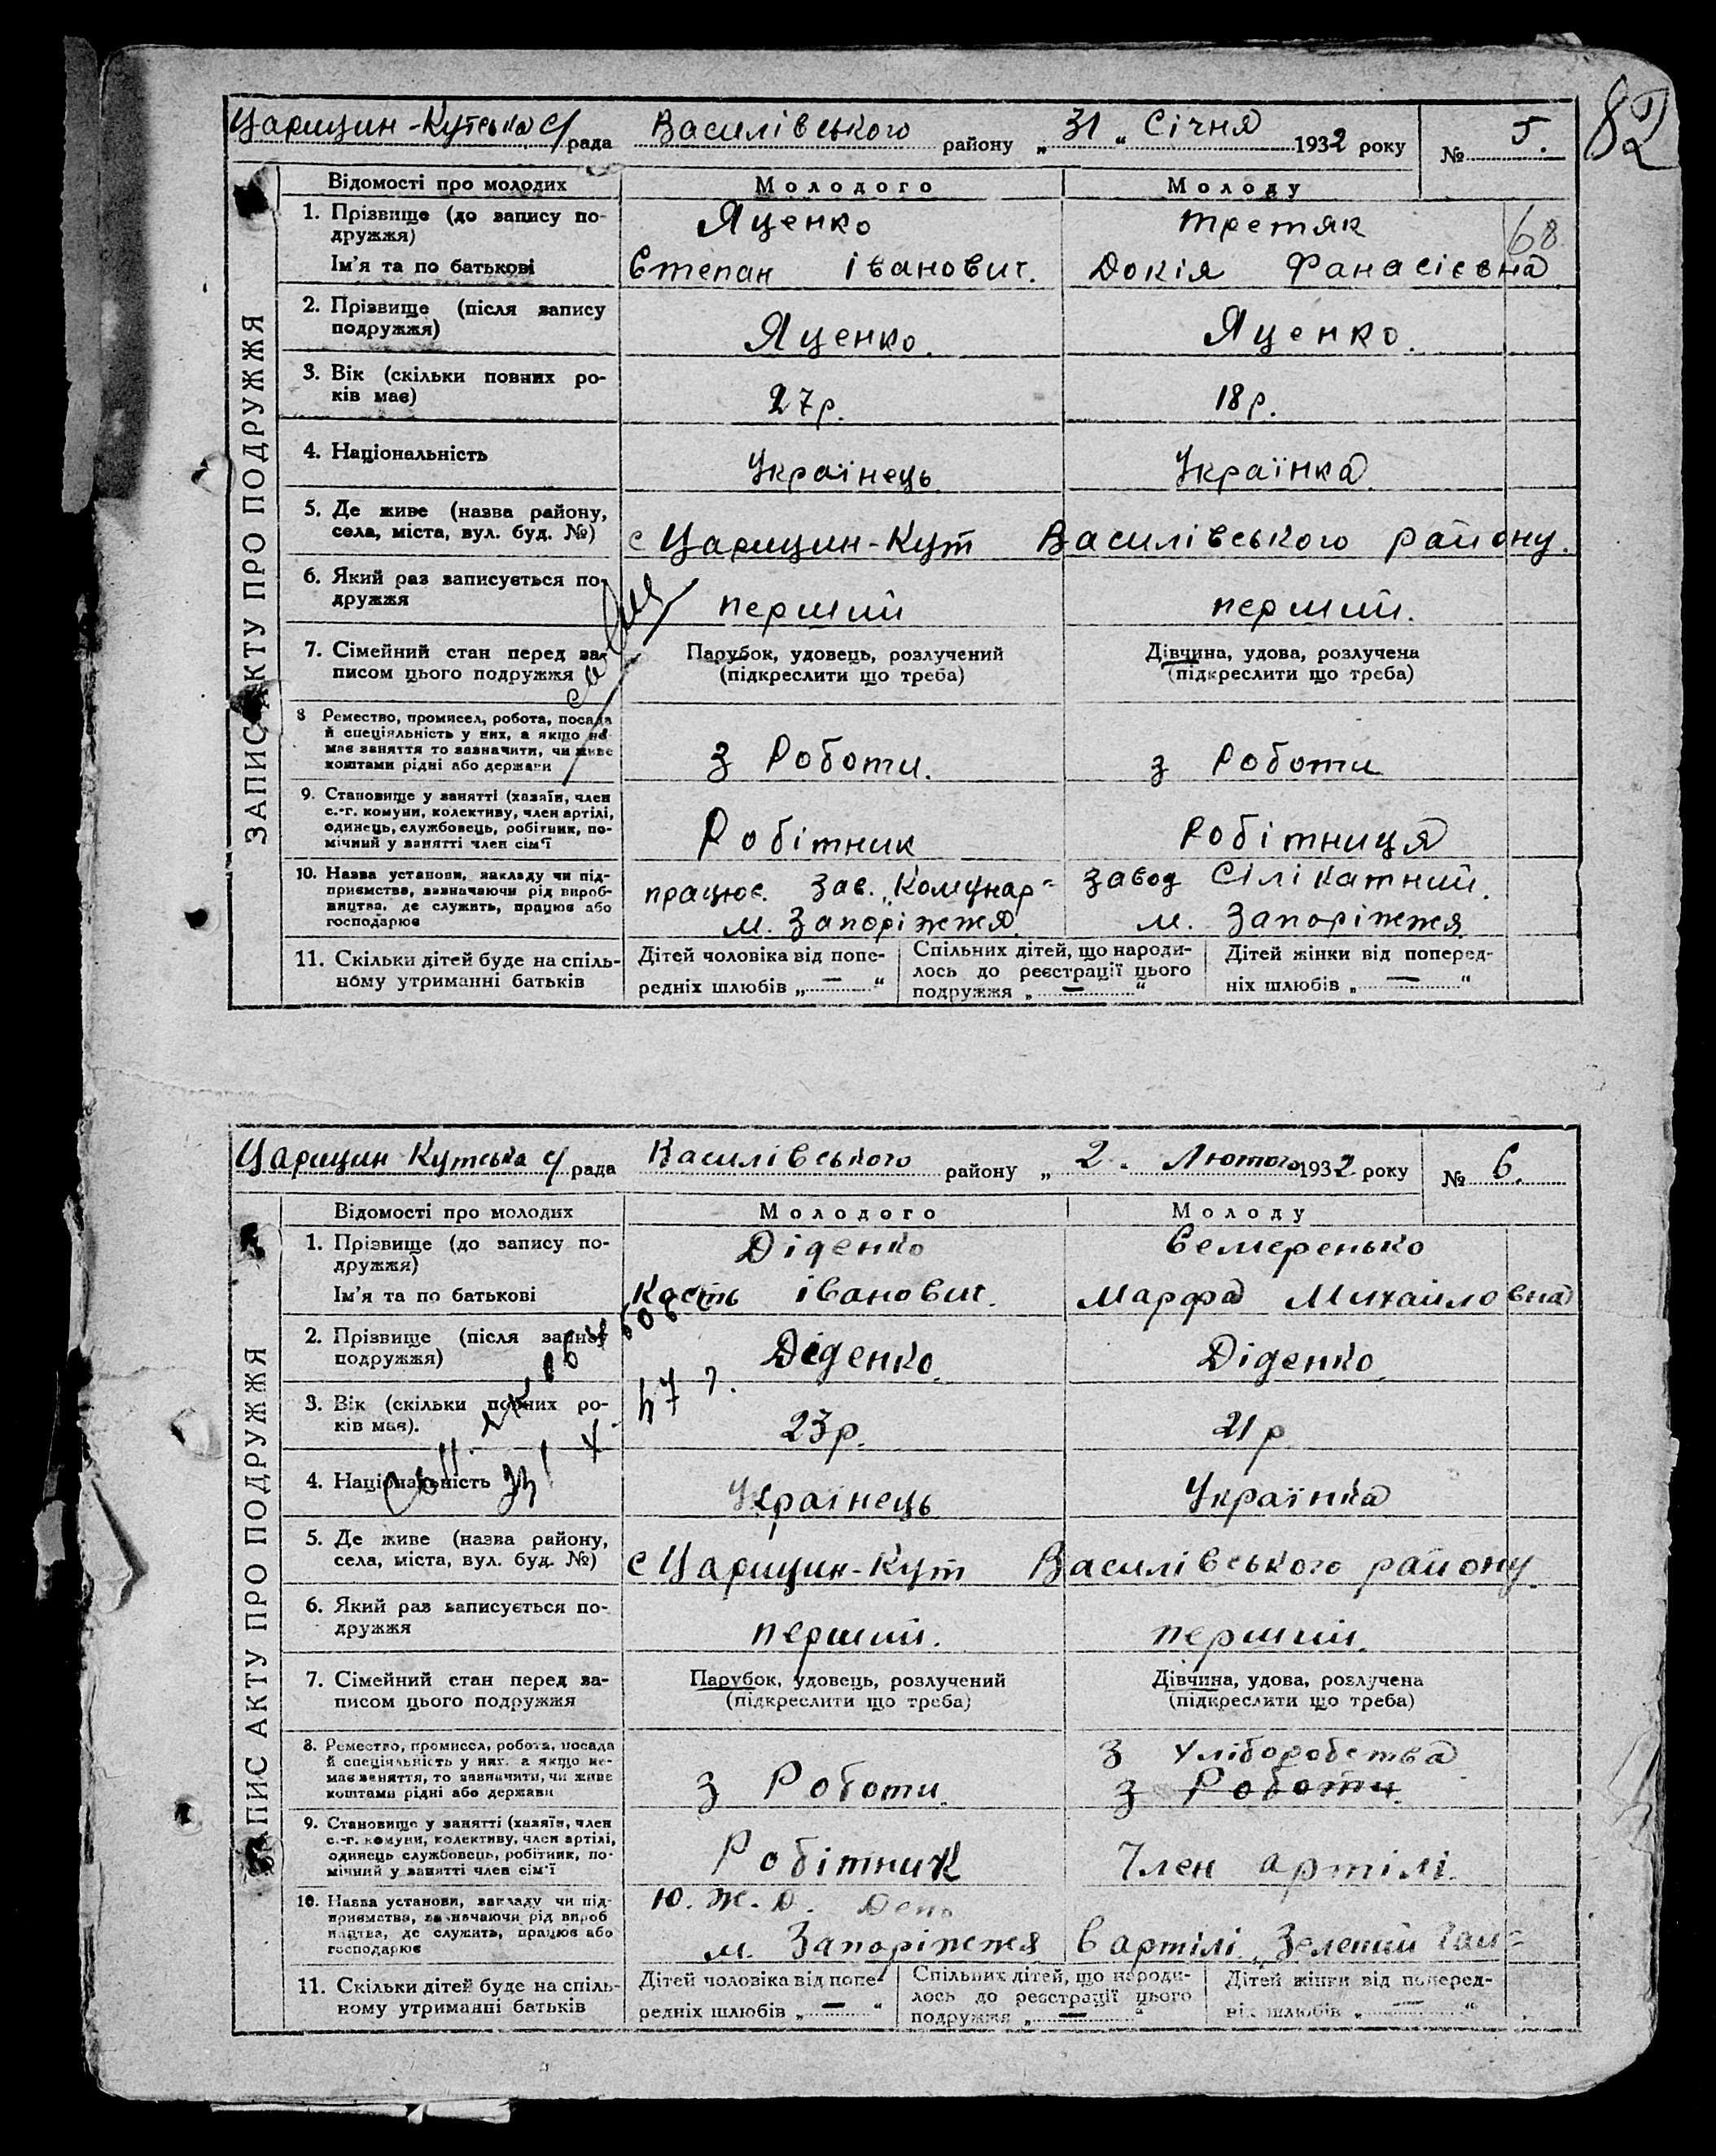 82
Царицин-Кутська с/рада Василівського району „31“ Січня 1932 року № 5.
ЗАПИС АКТУ ПРО ПОДРУЖЖЯ
Відомості про молодих Молодого Молоду
1. Прізвище (до запису по-
дружжя) Яценко Третяк 68
Ім'я та по батькові Степан Іванович. Докія Фанасієвна
2. Прізвище (після запису
подружжя) Яценко. Яценко.
3. Вік (скільки повних ро-
ків має) 27 р. 18 р.
4. Національність Українець. Українка.
5. Де живе (назва району,
села, міста, вул. буд. №) с Царицин-Кут Василівського району.
6. Який раз записується по-
дружжя перший перший.
7. Сімейний стан перед за- Парубок, удовець, розлучений Дівчина, удова, розлучена
писом цього подружжя (підкреслити що треба) (підкреслити що треба)
8 Ремество, промисел, робота, посада
й спеціяльність у них, а якщо не
має заняття то зазначити, чи живе
коштами рідні або держави З Роботи. З Роботи
9. Становище у занятті (хазяїн, член
с.-г. комуни, колективу, член артілі,
одинець, службовець, робітник, по-
мічний у занятті член сім'ї Робітник Робітниця
10. Назва установи, закладу чи під-
приємства, зазначаючи рід вироб- працює. Зав. „Комунар" завод Сілікатний.
ництва, де служить, працює або
господарює м. Запоріжжя. м. Запоріжжя
11. Скільки дітей буде на спіль-
ному утриманні батьків
Дітей чоловіка від попе-
редніх шлюбів „—“
Спільних дітей, що народи-
лось до реєстрації цього
подружжя „—“
Дітей жінки від поперед-
ніх шлюбів „—“
Царицин Кутська с/рада Василівського району „2. Лютого 1932 року № 6.
ЗАПИС АКТУ ПРО ПОДРУЖЖЯ
Відомості про молодих Молодого Молоду
1. Прізвище (до запису по-
дружжя) Діденко Семеренько
Ім'я та по батькові Кость Іванович. Марфа Михайловна
2. Прізвище (після запису
подружжя) Діденко. Діденко.
3. Вік (скільки повних ро-
ків має). 23 р. 21 р
4. Національність Українець Українка
5. Де живе (назва району,
села, міста, вул. буд. №) с Царицин-Кут Василівського району.
6. Який раз записується по-
дружжя перший. перший.
7. Сімейний стан перед за- Парубок, удовець, розлучений Дівчина, удова, розлучена
писом цього подружжя (підкреслити що треба) (підкреслити що треба)
8. Ремество, промисел, робота, посада
й спеціяльність у них, а якщо не- З Хліборобства
має заняття, то зазначити, чи живе
коштами рідні або держави З Роботи. З Роботи.
9. Становище у занятті (хазяїн, член
с.-г. комуни, колективу, член артілі,
одинець службовець, робітник, по-
мічний у занятті член сім'ї Робітник Член артілі.
10. Назва установи, закладу чи під- Ю. Ж. Д. Депо
приємства, зазначаючи рід вироб
ництва, де служить, працює або
господарює м. Запоріжжя В артілі „Зелений Гай"
11. Скільки дітей буде на спіль-
ному утриманні батьків
Дітей чоловіка від попе-
редніх шлюбів „—“
Спільних дітей, що народи-
лось до реєстрації цього
подружжя „—“
Дітей жінки від поперед-
ніх шлюбів „—“